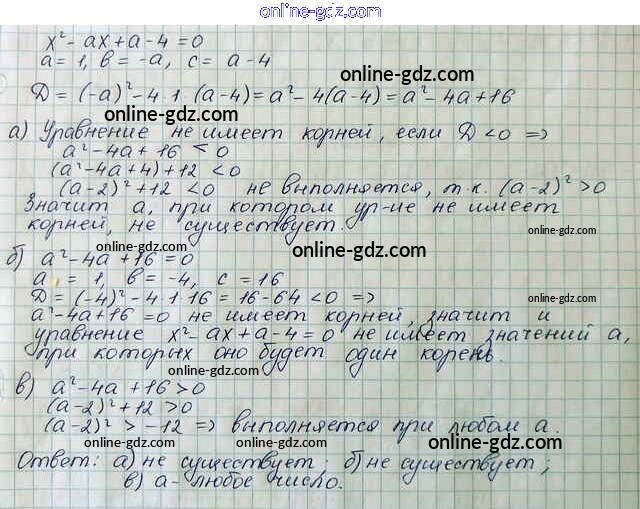 online-gdz.com
x² - ax + a - 4 = 0
a = 1, в = -a, c = a - 4
online-gdz.com
Д = (-a)² - 4·1·(a-4) = a² - 4(a-4) = a² - 4a + 16
online-gdz.com
а) Уравнение не имеет корней, если Д < 0 =>
a² - 4a + 16 < 0
online-gdz.com
(a² - 4a + 4) + 12 < 0
(a-2)² + 12 < 0 не выполняется, т.к. (a-2)² > 0
Значит a, при котором ур-ие не имеет
корней, не существует.
online-gdz.com
online-gdz.com
online-gdz.com
б) a² - 4a + 16 = 0
a = 1, в = -4, c = 16
online-gdz.com
Д = (-4)² - 4·1·16 = 16 - 64 < 0 =>
online-gdz.com
a² - 4a + 16 = 0 не имеет корней, значит и
уравнение x² - ax + a - 4 = 0 не имеет значений a,
при которых оно будет один корень.
online-gdz.com
online-gdz.com
в) a² - 4a + 16 > 0
(a-2)² + 12 > 0
(a-2)² > -12 => выполняется при любом a.
online-gdz.com
online-gdz.com
online-gdz.com
Ответ: а) не существует; б) не существует;
в) a - любое число.
online-gdz.com